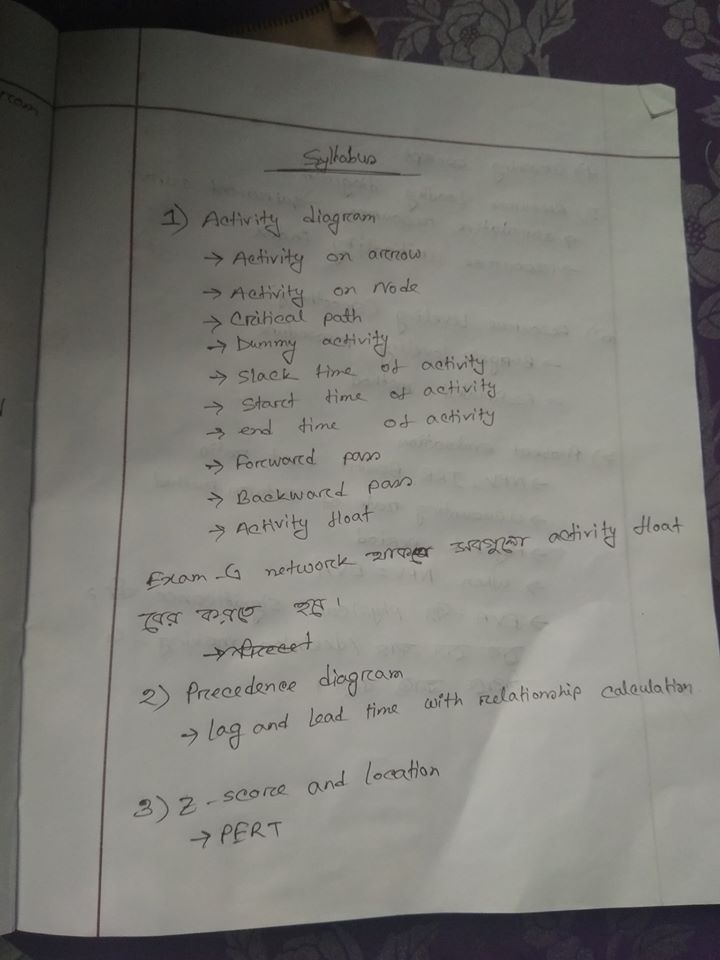 Syllabus
1) Activity diagram
→ Activity on arrow
→ Activity on Node
→ Critical path
→ Dummy activity
→ Slack time of activity
→ Start time of activity
→ end time of activity
→ Forward pass
→ Backward pass
→ Activity float
Exam-এ network থাকবে সবগুলো activity float
বের করতে হবে।
2) Precedence diagram
→ lag and lead time with relationship calculation
3) Z-score and location
→ PERT